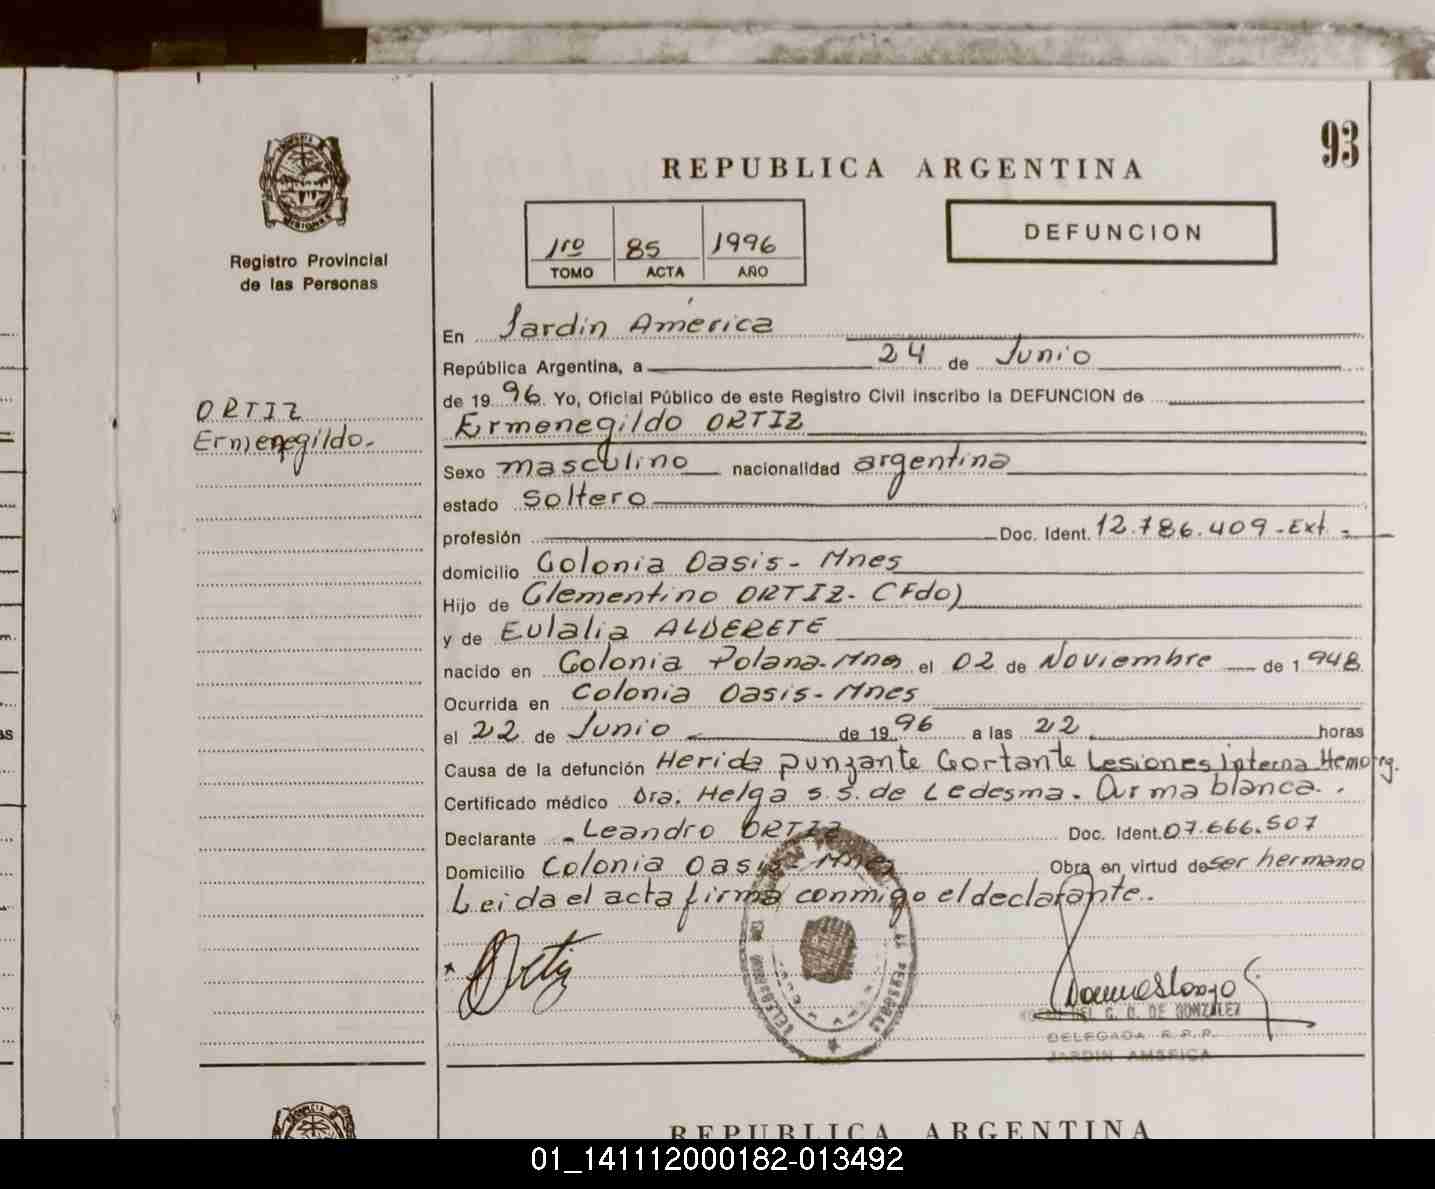 93
REPUBLICA ARGENTINA
1ro 85 1996
TOMO ACTA AÑO
DEFUNCION
Registro Provincial
de las Personas
ORTIZ
Ermenegildo.
En Jardín América
República Argentina, a 24 de Junio
de 1996. Yo, Oficial Público de este Registro Civil inscribo la DEFUNCION de
Ermenegildo ORTIZ
Sexo masculino nacionalidad argentina
estado soltero
profesión Doc. Ident. 12.786.409-Ext.
domicilio Colonia Oasis-Mnes
Hijo de Clementino ORTIZ. (Fdo)
y de Eulalia ALDERETE
nacido en Colonia Polana-Mnes el 02 de Noviembre de 1948
Ocurrida en Colonia Oasis-Mnes
el 22 de Junio de 1996 a las 22 horas
Causa de la defunción Herida punzante Cortante Lesiones interna Hemorrg.
Certificado médico Dra. Helga S.S. de Ledesma. Arma blanca.
Declarante Leandro ORTIZ Doc. Ident. 07.666.507
Domicilio Colonia Oasis-Mnes Obra en virtud de ser hermano
Leida el acta firma conmigo el declarante.
Ortiz
DE GONZALEZ
DELEGADA R.P.P.
JARDIN AMERICA
REPUBLICA ARGENTINA
01_141112000182-013492